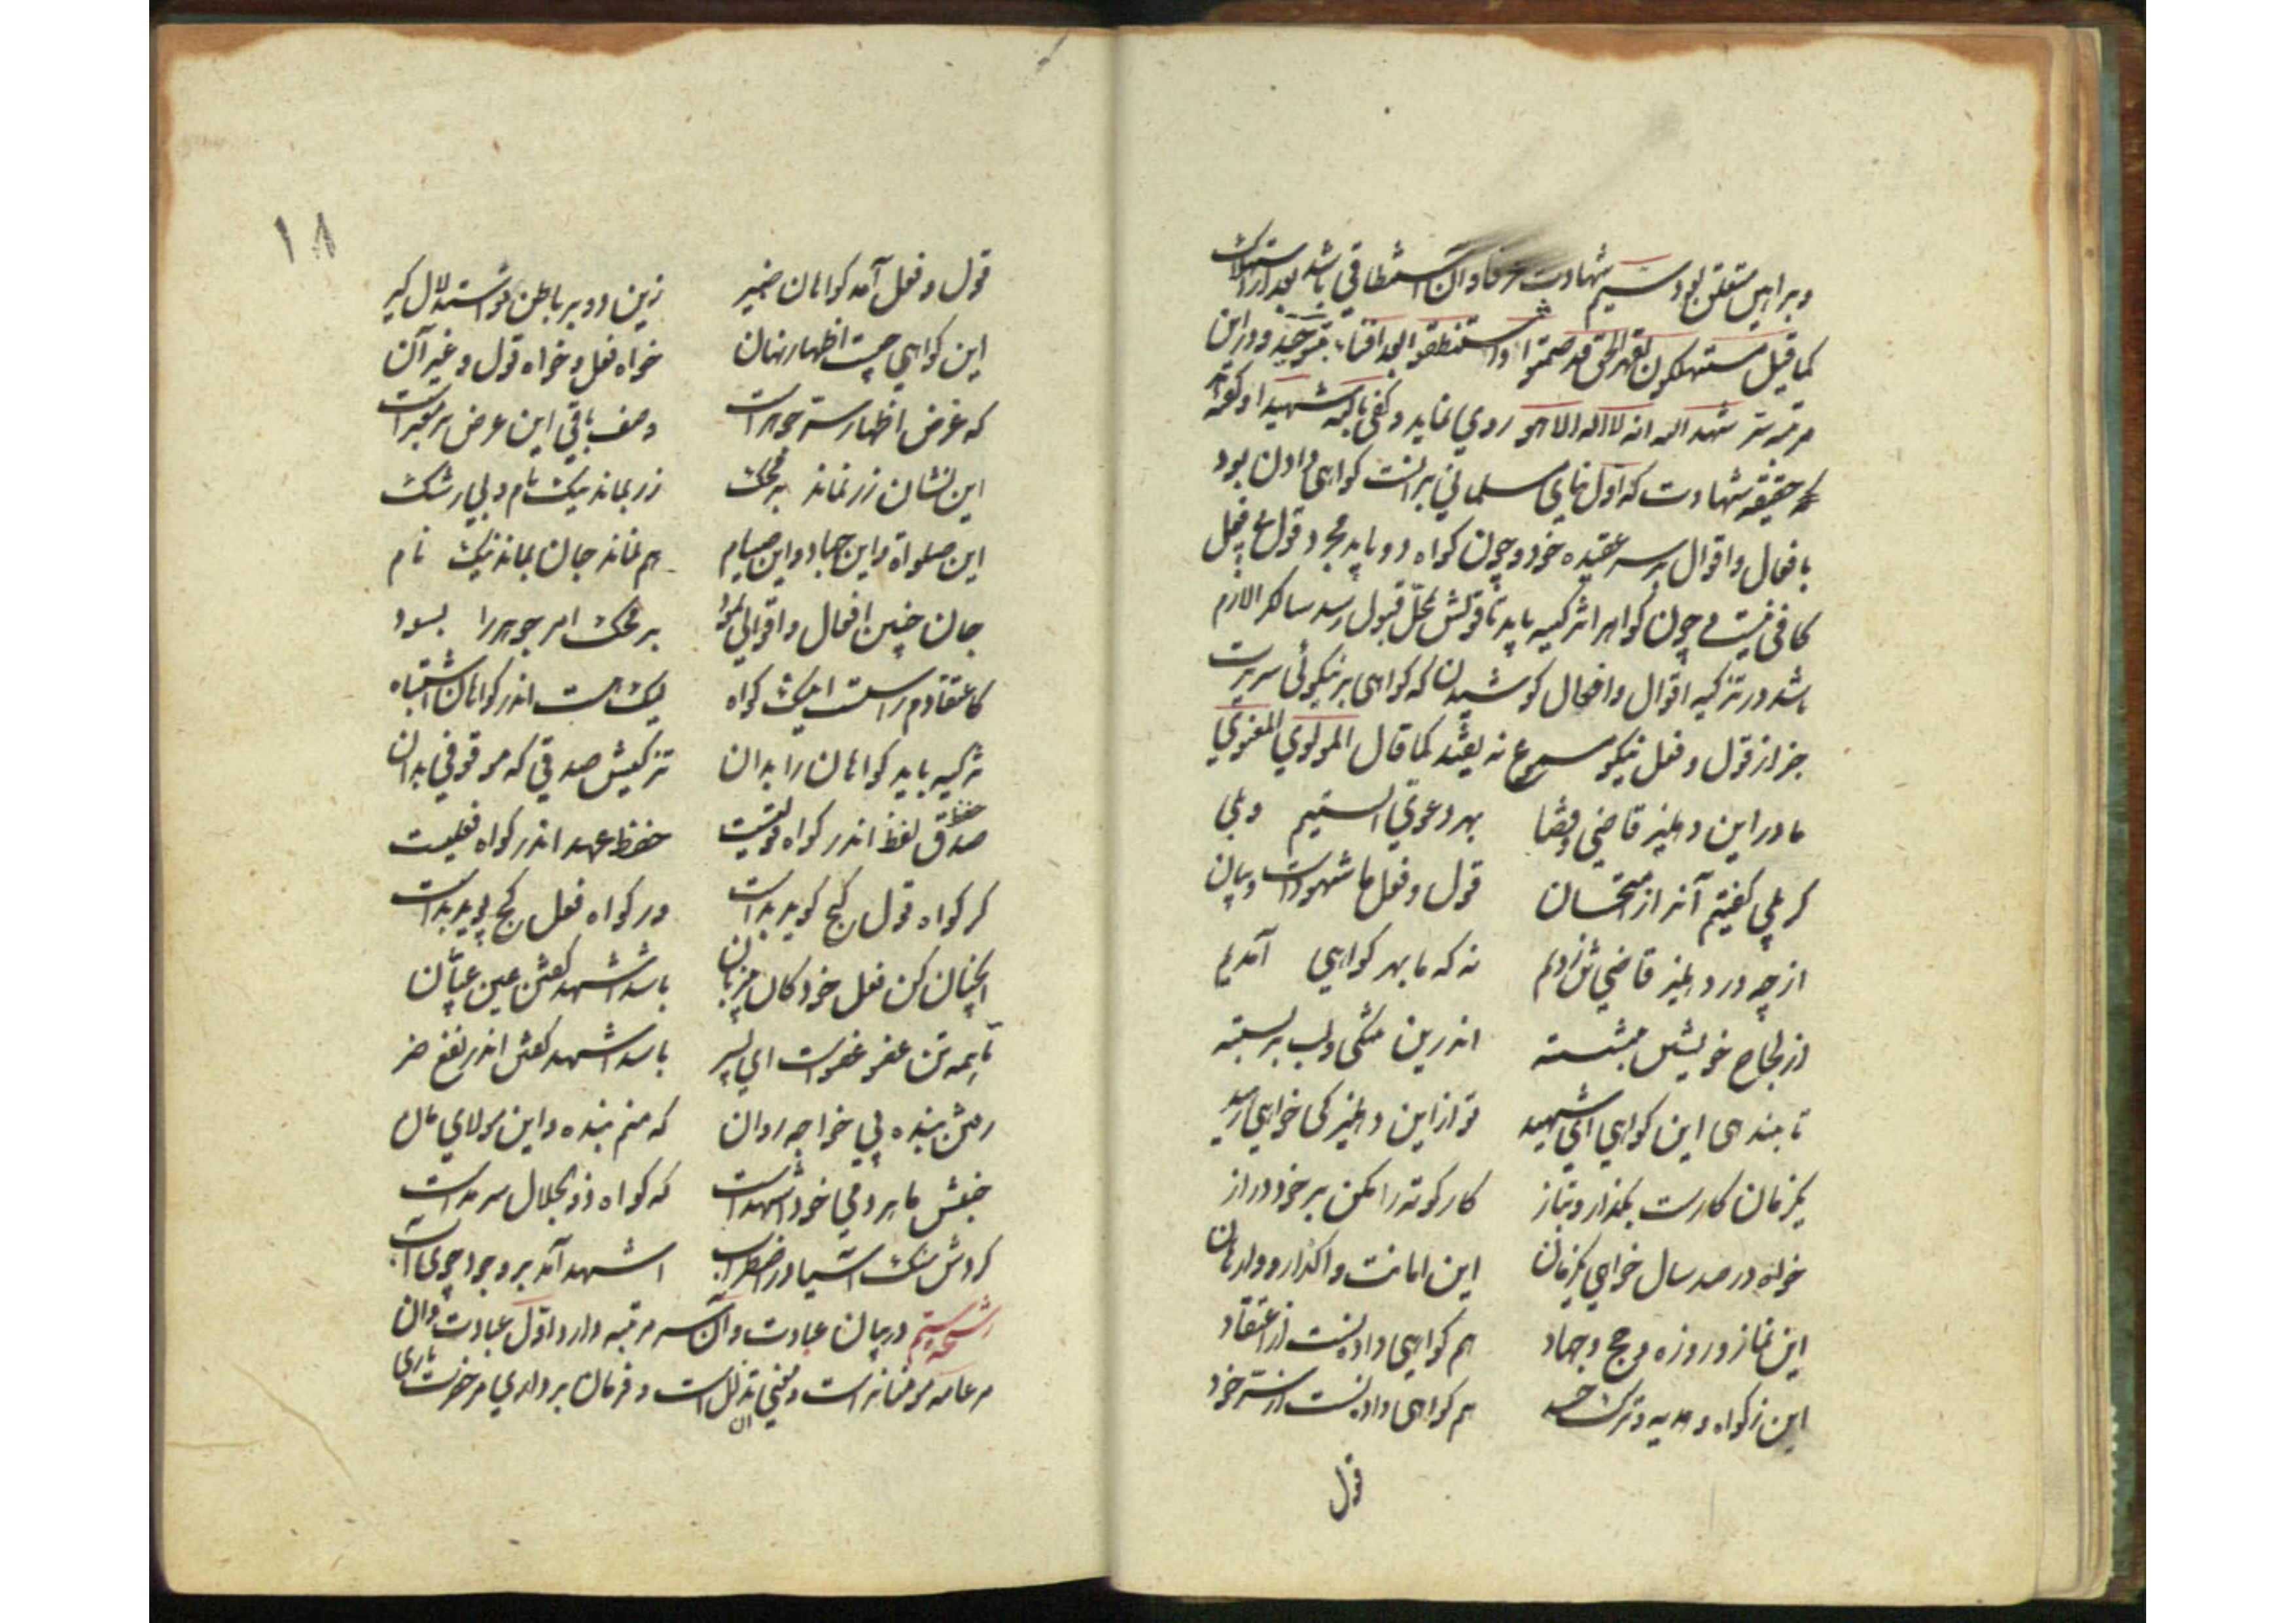 وبراهین متعلق بود سیم شهادت عرفا و آن استنطاقی باشد بعد از استهلاک
کما قیل مستهلکون بقهر الحق قد صمتوا واستنطقوا بعد افناء بتوحید و در این
مرتبه سر شهد الله انه لا اله الا هو روی نماید و کفی بالله شهیدا
حقیقه شهادت که اول بنای مسلمانی برانست کواهی دادن بود
بافعال و اقوال بر سر عقیده خود و چون کواه دو باید مجرد قول بی فعل
کافی نیست و چون کواهرا تزکیه باید تا قولش بمحل قبول رسد سالکرا لازم
باشد در تزکیه اقوال و افعال کوشیدن که کواهی بر نیکوئی سریرت
جز از قول و فعل نیکو مسموع نه یفتد کما قال المولوی المعنوی
ما در این دهلیز قاضی قضا بهر دعوی الستیم و بلی
کر بلی کفتیم آنرا ز امتحان قول و فعل ما شهودست و بیان
از چه در دهلیز قاضی تن زدیم نه که ما بهر کواهی آمدیم
از لجاج خویش بنشسته اندرین تنکی و لب بر بسته
تا بندهی این کواهی ای شهید تو از این دهلیز کی خواهی رهید
یکزمان کارست بکذار و بتاز کار کوته را مکن بر خود دراز
خواه در صد سال خواهی یکزمان این امانت واکذار و وارهان
این نماز و روزه و حج و جهاد هم کواهی دادنست از اعتقاد
این زکواه و هدیه و ترک حسد هم کواهی دادنست از سر خود
قول
۱۸
قول و فعل آمد کواهان ضمیر زین دو بر باطن تو استدلال کیر
این کواهی چیست اظهار نهان خواه فعل و خواه قول و غیر آن
که غرض اظهار سر جوهرست وصف باقی این عرض بر معبرست
این نشان زر نماند بر محک زر بماند نیک نام و بی ز شک
این صلواة و این جهاد و این صیام هم نماند جان بماند نیک نام
جان چنین افعال و اقوالی نمود بر محک امر جوهر را بسود
کاعتقادم راست اینک کواه لیک هست اندر کواهان اشتباه
تزکیه باید کواهان را بدان تزکیش صدقی که موقوفی بدان
حفظ
صدق لفظ اندر کواه قولیست حفظ عهد اندر کواه فعلیست
کر کواه قول کج کوید بدست ور کواه فعل کج پوید بدست
آنچنان کن فعل خود کان بی زبان باشد اشهد کفتن عین عیان
تا همه تن عضو عضوت ای پسر باشد اشهد کفتن اندر نفع ضر
رفتن بنده پی خواجه روان که منم بنده و این مولای مان
جنبش ما هر دمی خود اشهدست که کواه ذوالجلال سرمدست
کردش سنک آسیا در اضطراب اشهد آمد بر وجود جوی آب
رشحه سیم در بیان عبادت و آن سه مرتبه دارد اول عبادت و آن
مر عامه مومنانراست و معنی آن تذلل است و فرمان برداری مر حضرت باری